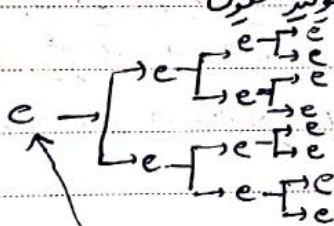 e → e → e → e
e
e → e
e
e → e → e
e
e → e
e